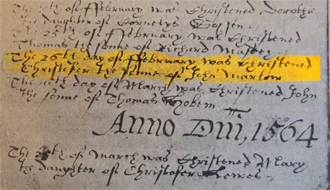 of ffebruary was Christened Dorothy
the daughter of Cornelys
of ffebruary was Christened
Thomas the sonne of Richard
The 26th day of ffebruary was Christened
Christofer the sonne of John Marlow
The day of March was Christened John
the sonne of Thomas
Anno Dni, 1564
The of March was Christened Mary
the daughter of Christofer